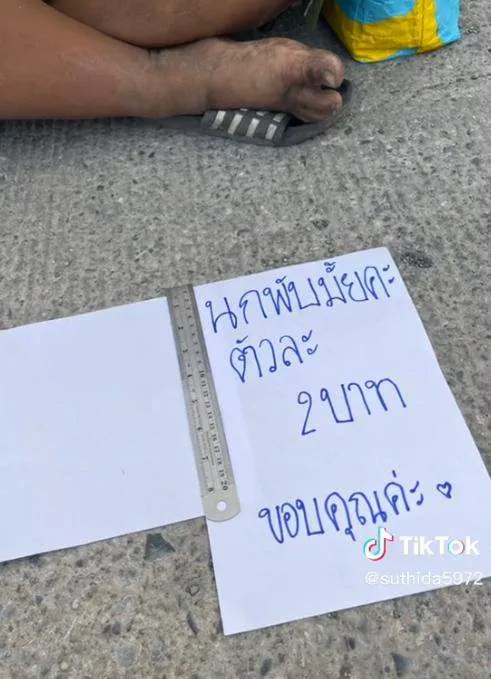 นกพับมั้ยคะ
ตัวละ
2 บาท
ขอบคุณค่ะ ♡
TikTok
@suthida5972